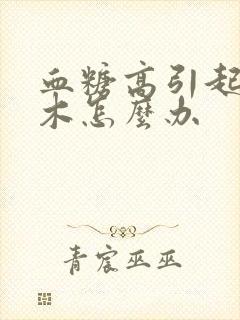 血糖高引起
木怎麼办
青宸巫巫